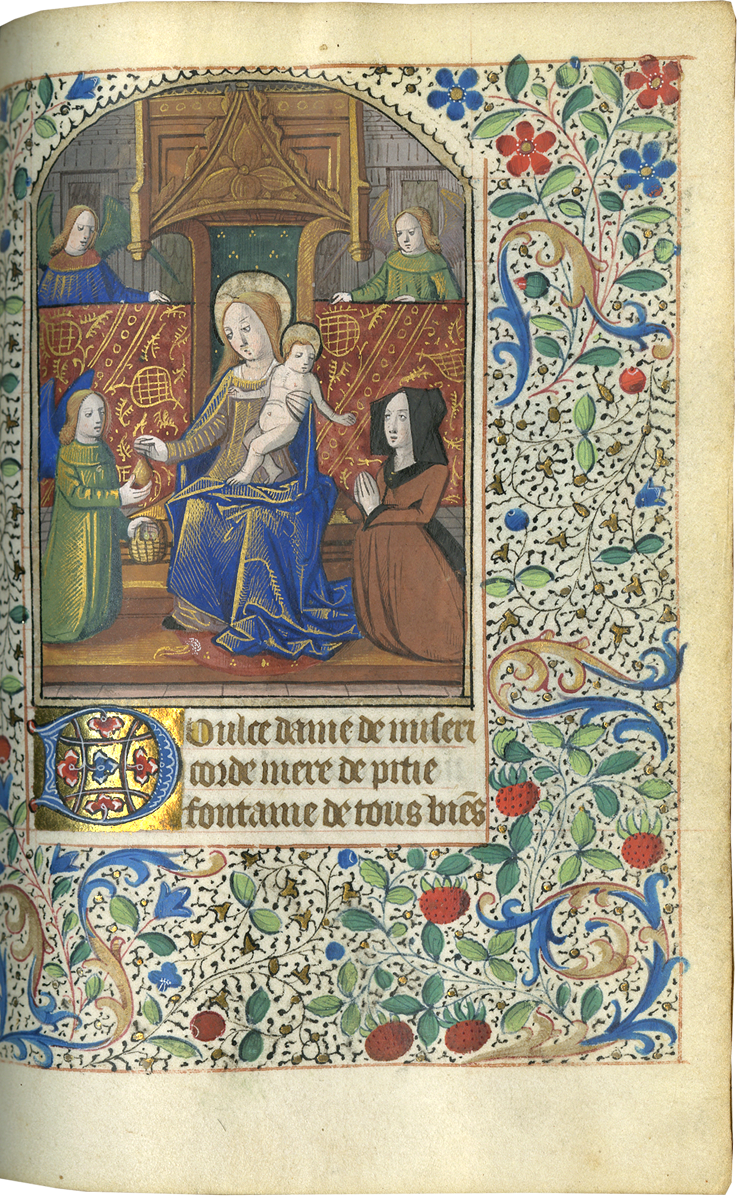 Doulce dame de miseri
corde mere de pitie
fontaine de tous biēs